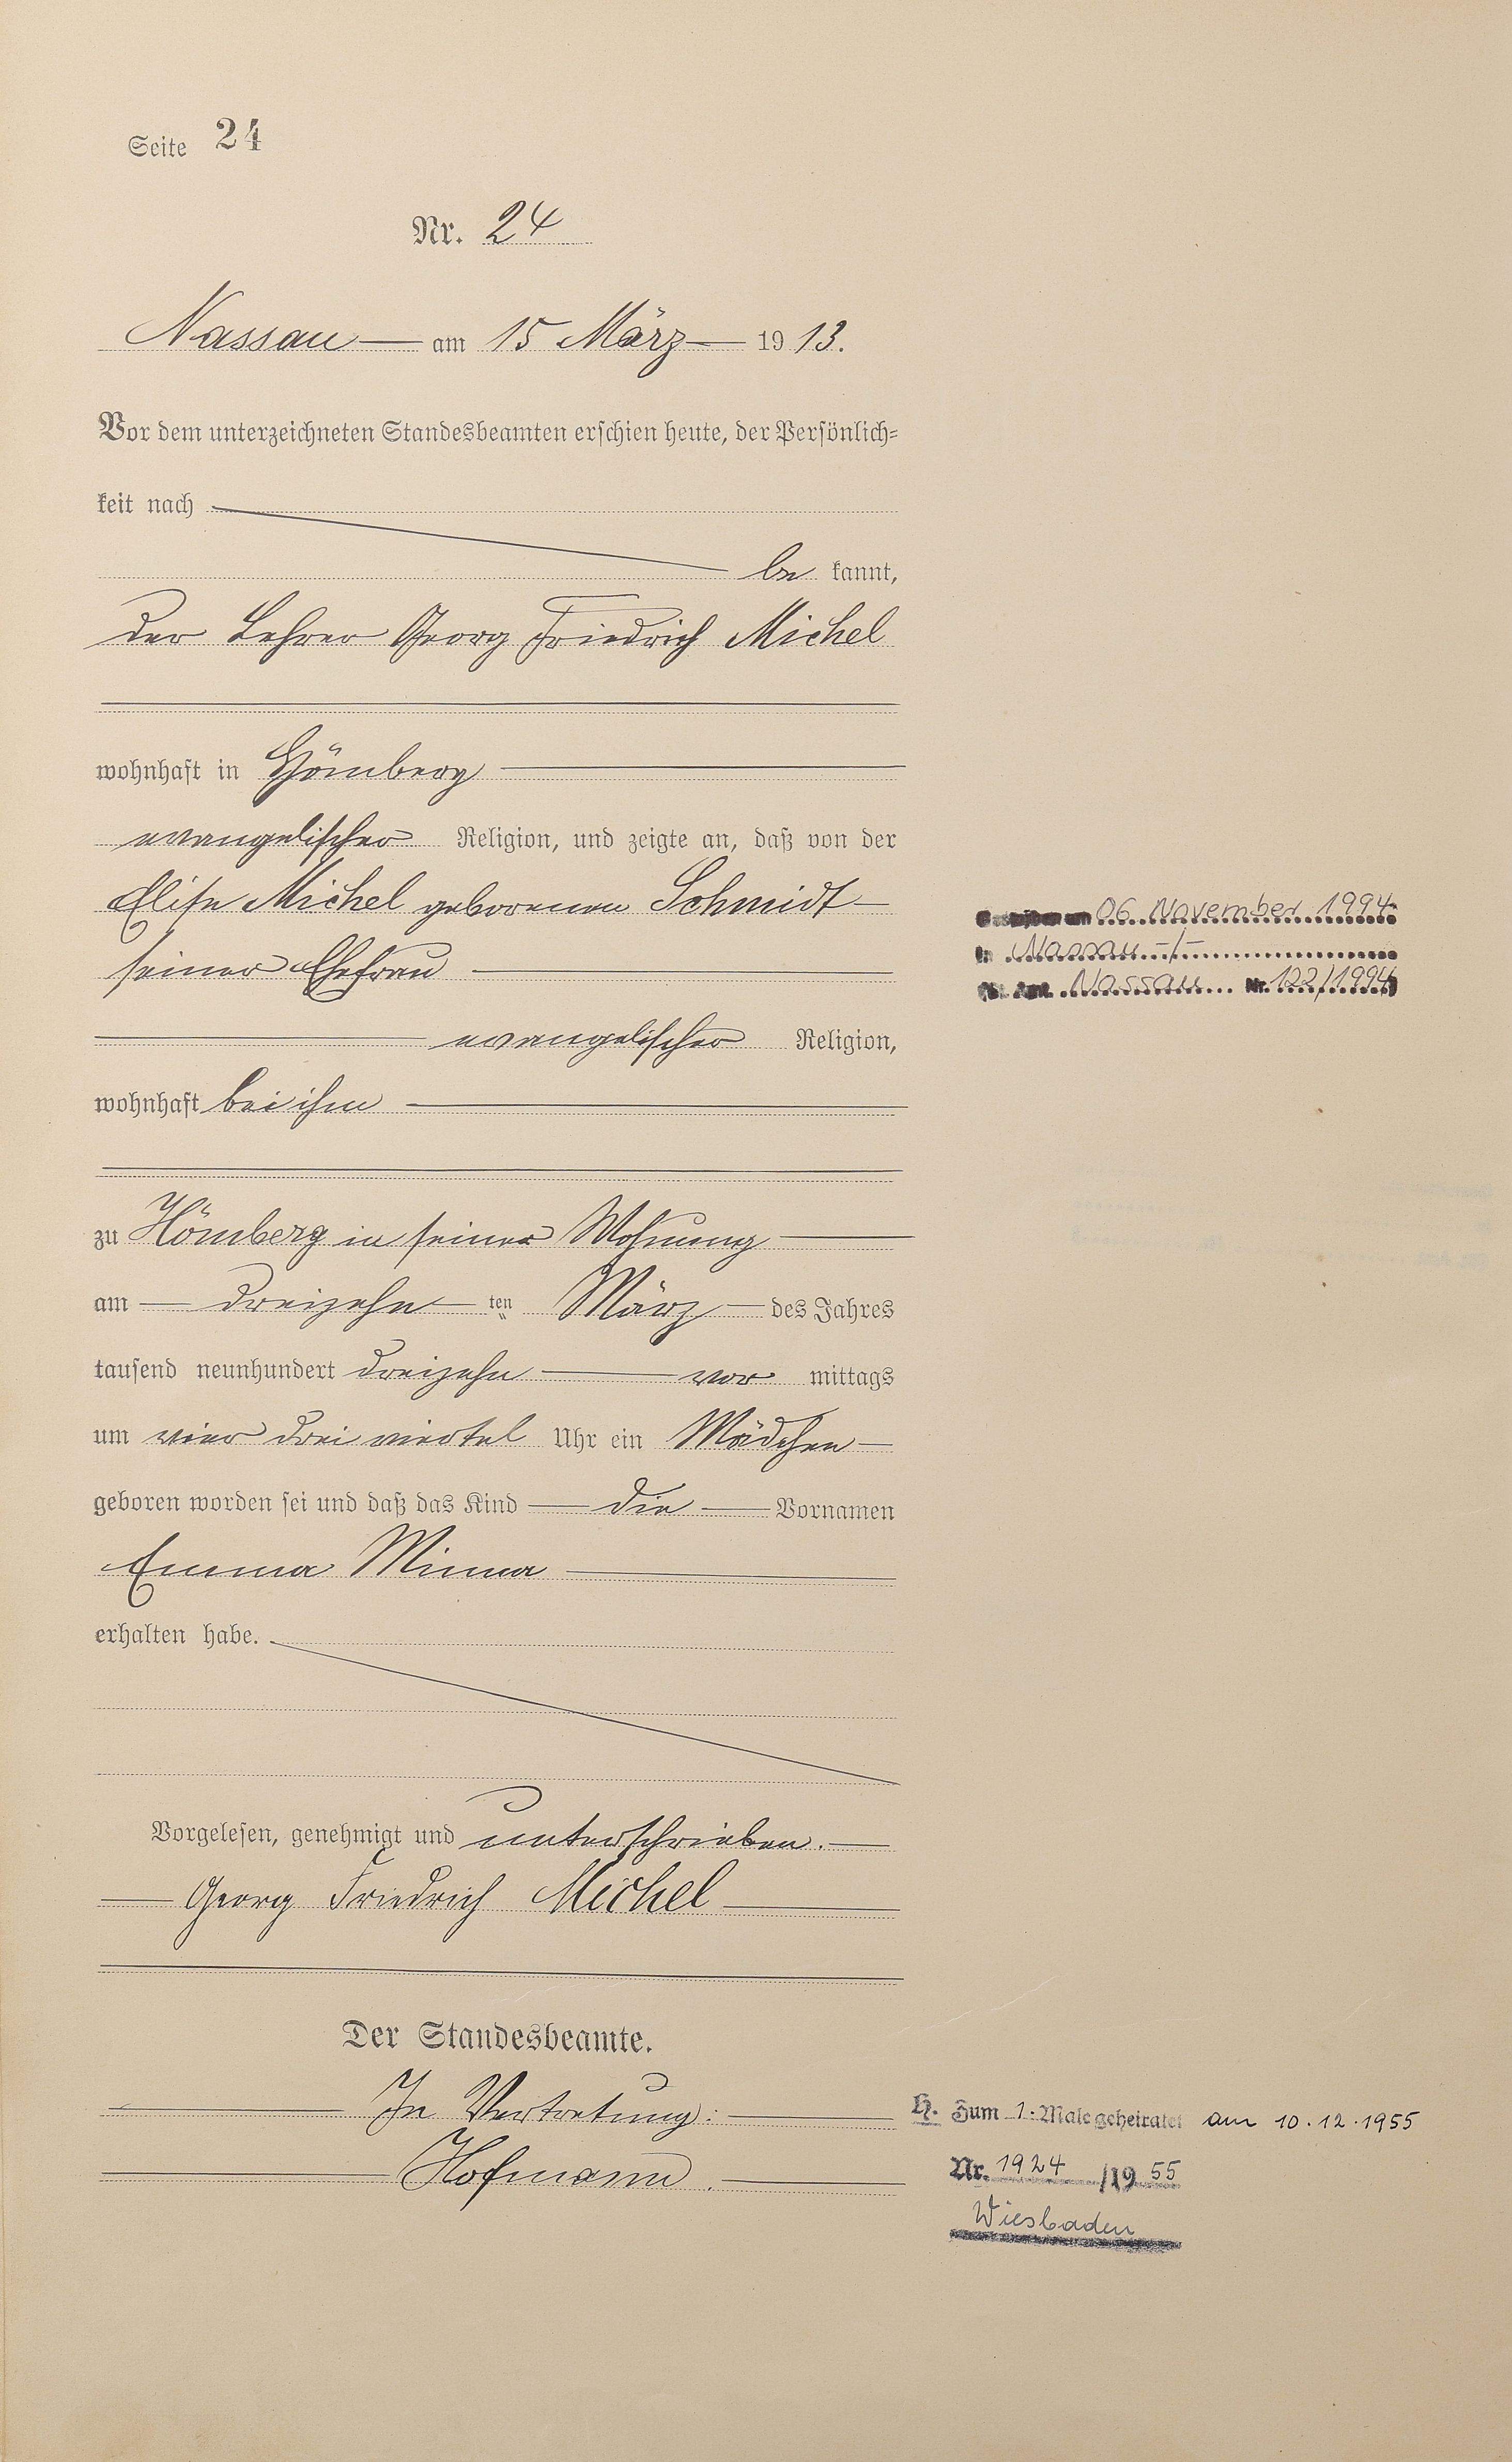 Seite 24
Nr. 24
Nassau am 15 März 1913.
Vor dem unterzeichneten Standesbeamten erschien heute, der Persönlich=
keit nach
be kannt,
der Lehrer Georg Friedrich Michel
wohnhaft in Hömberg
evangelischer Religion, und zeigte an, daß von der
Elise Michel geborenen Schmidt
seiner Ehefrau
evangelischer Religion,
wohnhaft bei ihm
zu Hömberg in seiner Wohnung
am dreizehn ten März des Jahres
tausend neunhundert dreizehn vor mittags
um vier drei viertel Uhr ein Mädchen
geboren worden sei und daß das Kind die Vornamen
Emma Minna
erhalten habe.
Vorgelesen, genehmigt und unterschrieben.
Georg Friedrich Michel
Der Standesbeamte.
In Vertretung:
Hofmann.
am 06. November 1994
in Nassau -/-
Amt Nassau Nr. 122/1994
H. Zum 1. Male geheiratet am 10.12.1955
Nr. 1924 /19 55
Wiesbaden